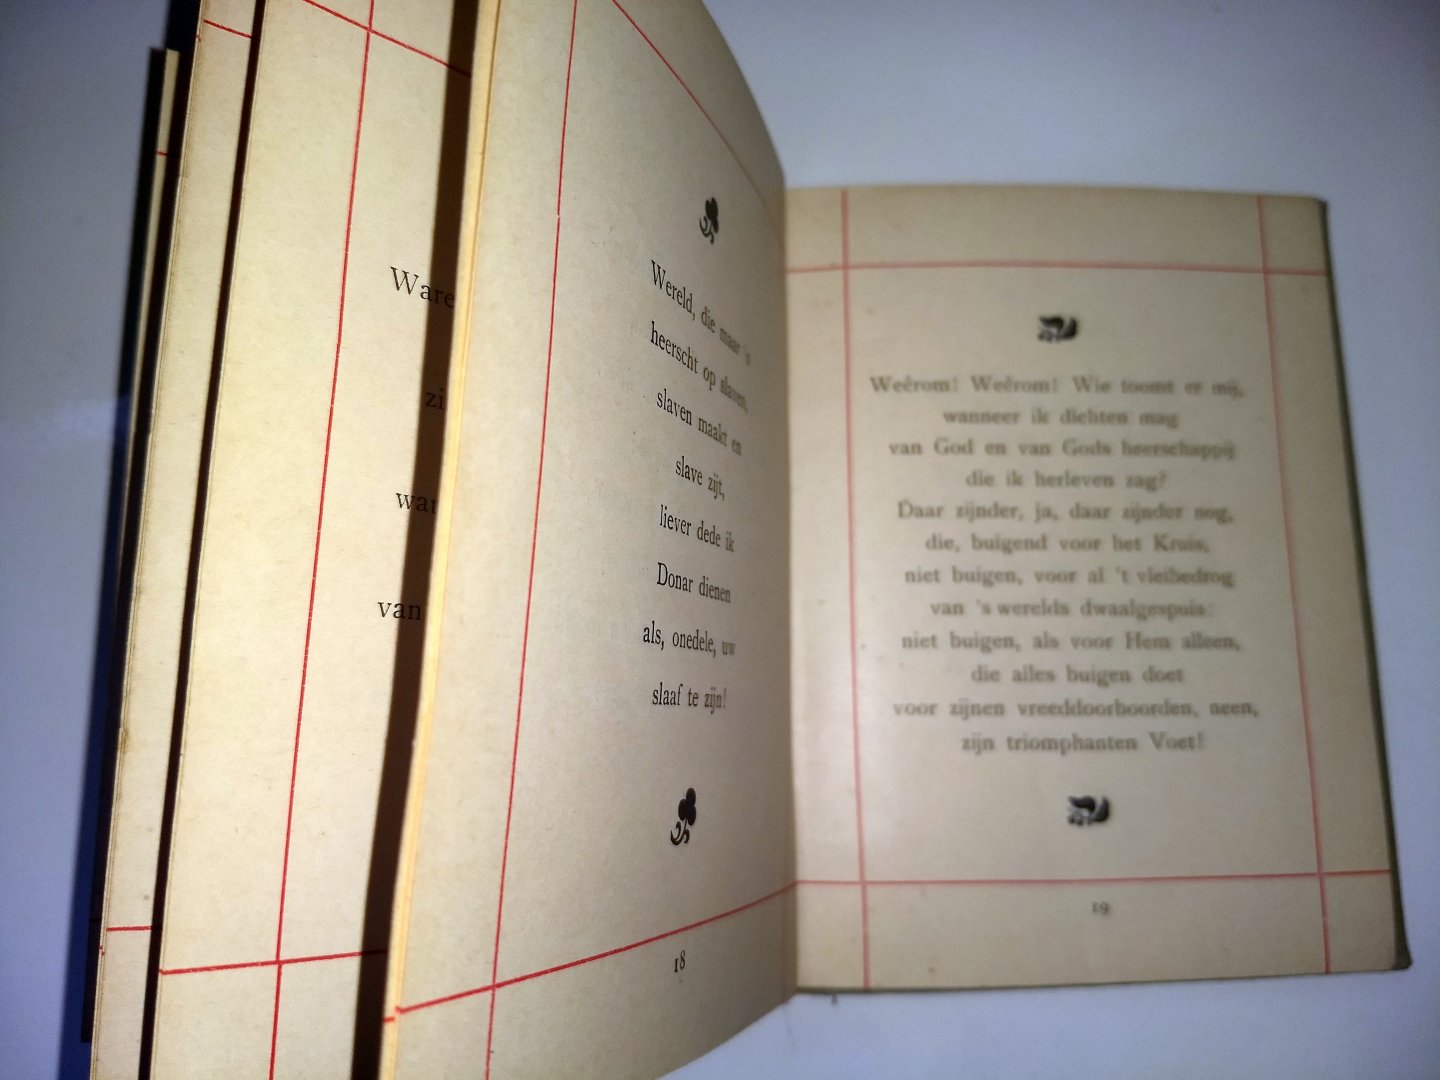 Ware
zi
war
van
Wereld, die maar 'n
heerscht op slaven,
slaven maakt en
slave zijt,
liever dede ik
Donar dienen
als, onedele, uw
slaaf te zijn!
18
Weêrom! Weêrom! Wie toomt er mij,
wanneer ik dichten mag
van God en van Gods heerschappij
die ik herleven zag?
Daar zijnder, ja, daar zijnder nog,
die, buigend voor het Kruis,
niet buigen, voor al 't vleibedrog
van 's werelds dwaalgespuis:
niet buigen, als voor Hem alleen,
die alles buigen doet
voor zijnen vreeddoorboorden, neen,
zijn triomphanten Voet!
19